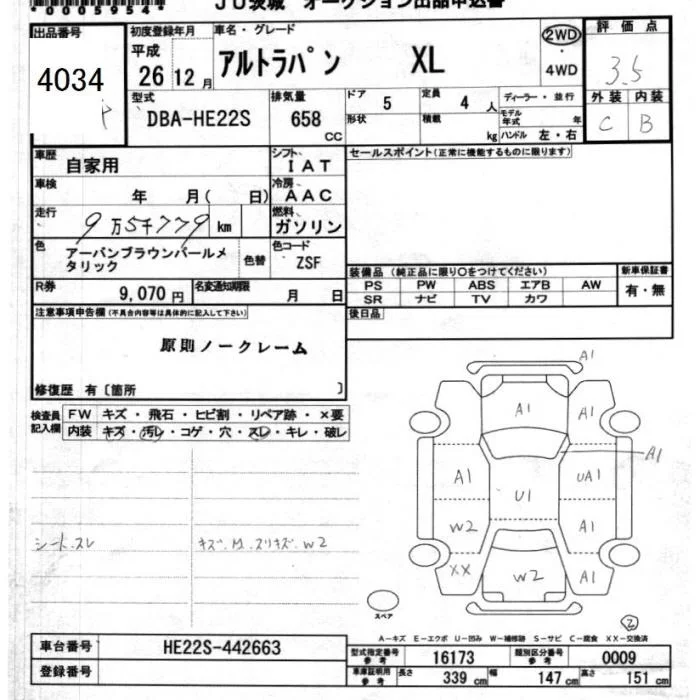 *00059544*
JU茨城 オークション出品申込書
出品番号 初度登録年月 車名・グレード 2WD 評価点
4034 平成 26 12月 アルトラパン XL 4WD 3.5
型式 排気量 ドア 5 定員 4人 ディーラー・並行 外装 内装
DBA-HE22S 658 CC 形状 積載 kg モデル年式 年 ハンドル 左・右 C B
車歴 自家用 シフト IAT セールスポイント(正常に機能するものに限ります)
車検 年 月( 日) 冷房 AAC
走行 9万5千779 km 燃料 ガソリン
色 アーバンブラウンパールメタリック 色替 色コード ZSF
装備品(純正品に限り○をつけてください) 新車保証書
R券 9,070円 名変通知期限 月 日 PS PW ABS エアB AW 有・無
SR ナビ TV カワ
注意事項申告欄(不具合内容等は具体的に記入して下さい) 後日品
原則ノークレーム
修復歴 有〔箇所 〕
検査員記入欄 FW キズ・飛石・ヒビ割・リペア跡・×要
内装 キズ・汚レ・コゲ・穴・スレ・キレ・破レ
A1
A1 A1
A1
A1 UA1
U1
W2 A1
シート.スレ キズ.M.スリキズ.W2
XX W2 A1
スペア
2
A-キズ E-エクボ U-凹み W-補修跡 S-サビ C-腐食 XX-交換済
車台番号 HE22S-442663 型式指定番号参考 16173 類別区分番号参考 0009
登録番号 車庫証明用参考 長さ 339 cm 幅 147 cm 高さ 151 cm